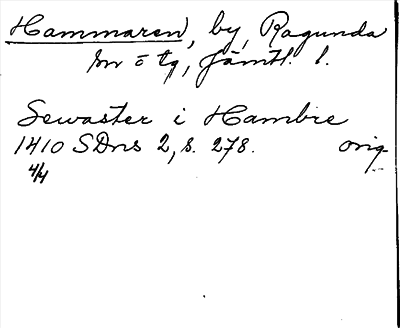 Hammaren, by, Ragunda
sn o tg, Jämtl. l.
Sewaster i Hambre
1410 SDns 2, s. 278. orig.
4/4